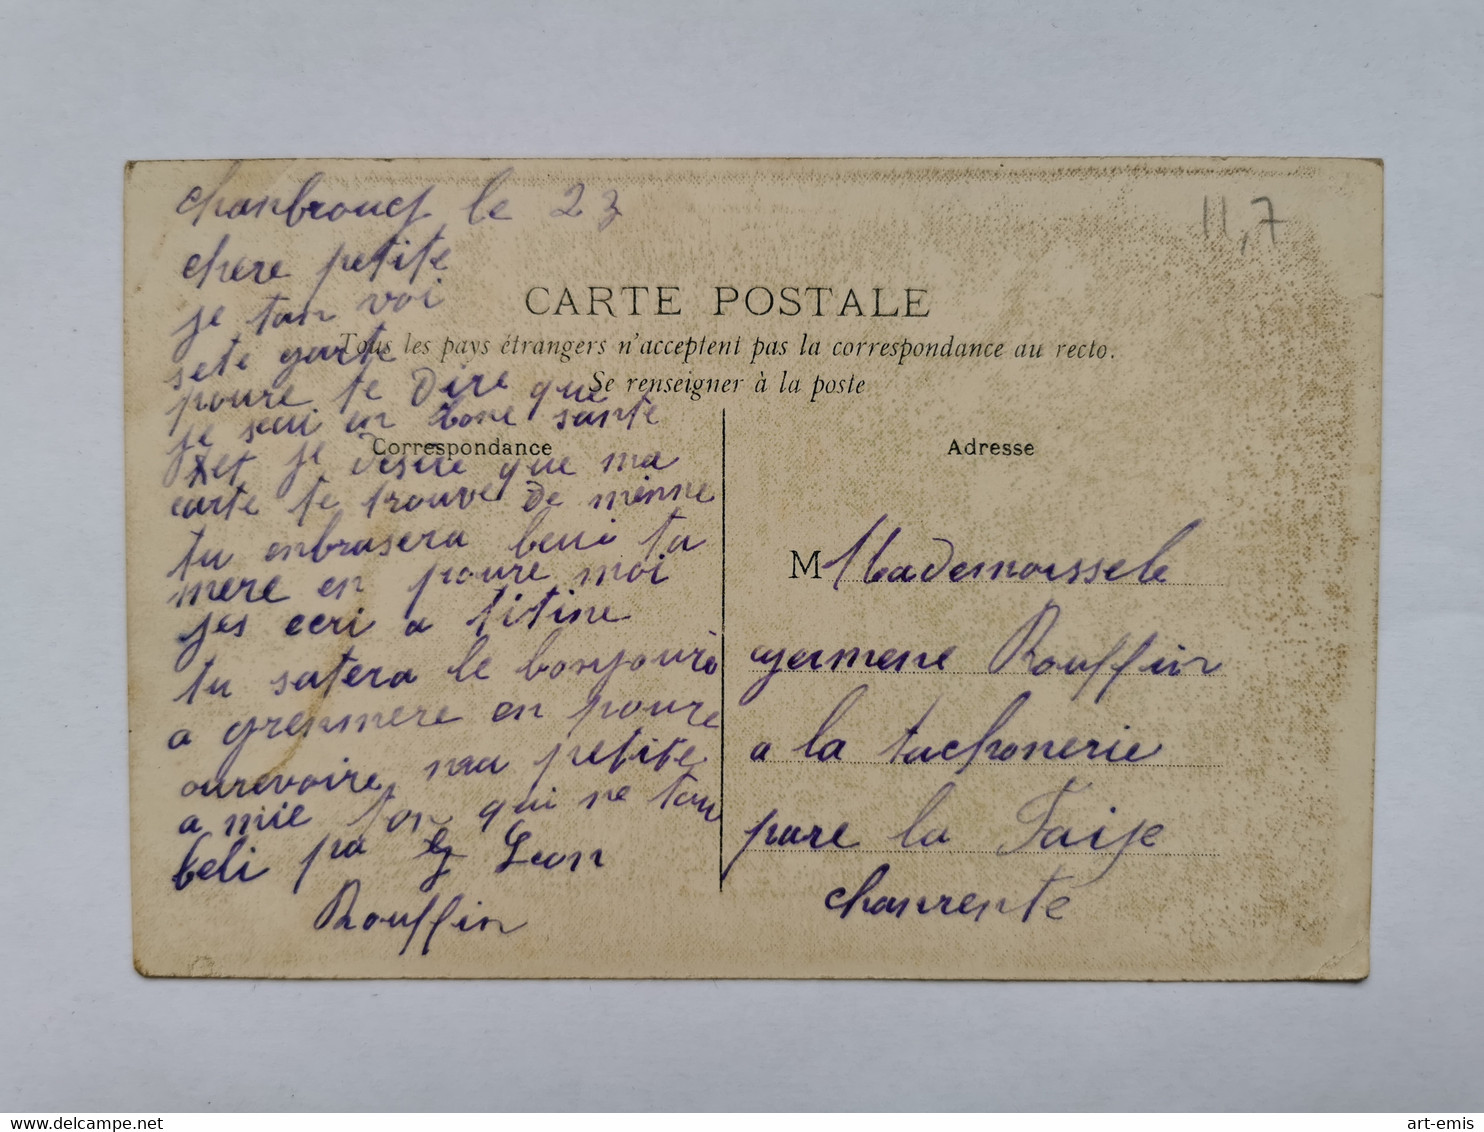 le 23
chere petite
je tan voi
sete garte
poure te Dire que
je sui en bone sante
et je desire que ma
carte te trouve De menne
tu enbrasera beui ta
mere en poure moi
jes ecri a titine
tu satera le bonjoure
a grenmere en poure
ourevoire ma petite
a mie ton qui ne tan
beli pa Leon
Rouffin
11,7
CARTE POSTALE
Tous les pays étrangers n'acceptent pas la correspondance au recto.
Se renseigner à la poste
Correspondance
Adresse
M Mademoissele
germene Rouffin
a la tachonerie
pare la Faije
charente
art-emis